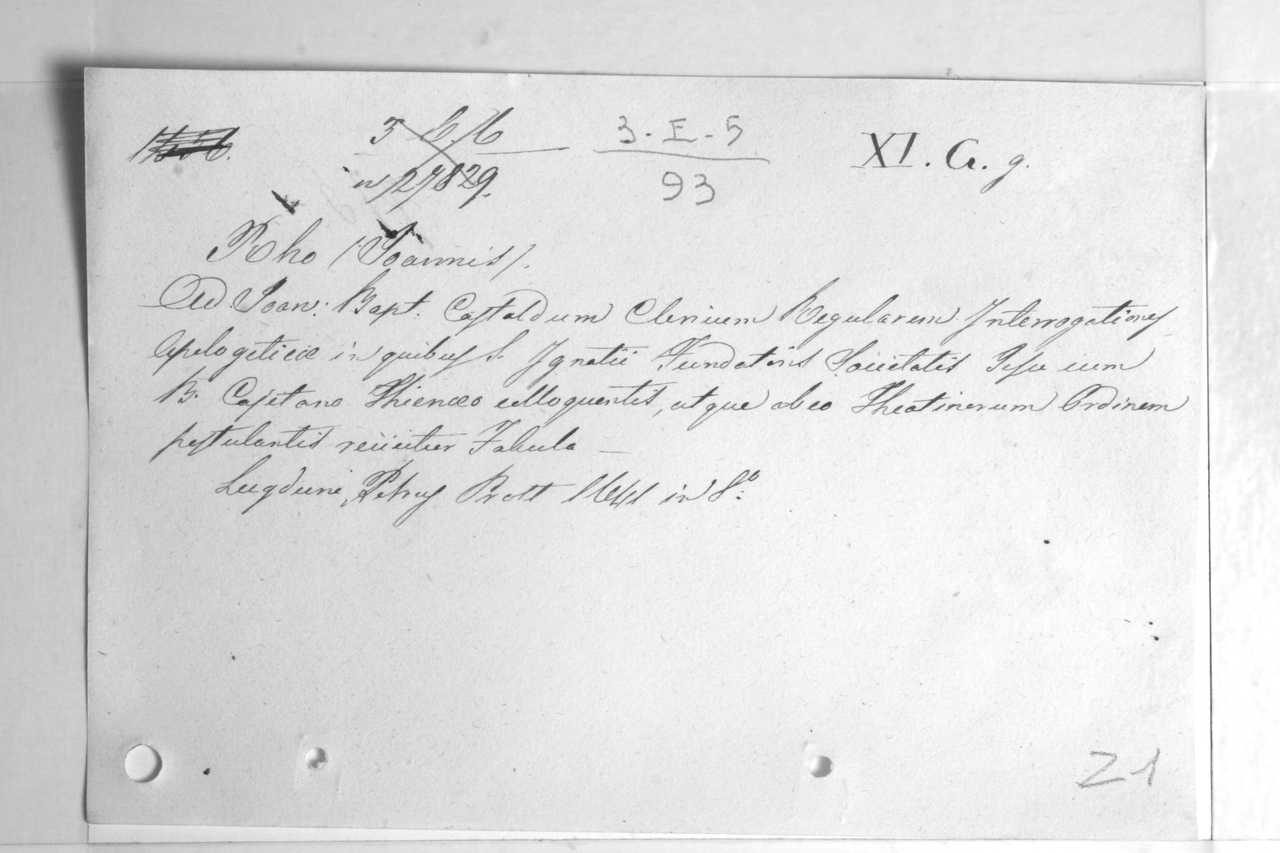 3 - E - 5
93
XI. G. g.
27829.
Rho (Joannis).
Ad Joan: Bapt. Castaldum Clericum Regularem Interrogationes
Apologeticæ in quibus S. Ignatii Fundatoris Societatis Jesu cum
B. Cajetano Thienæo colloquentis, atque ab eo Theatinorum Ordinem
postulantis reiicitur Fabula —
Lugduni, Petrus Prost 1641 in 8º
Z1